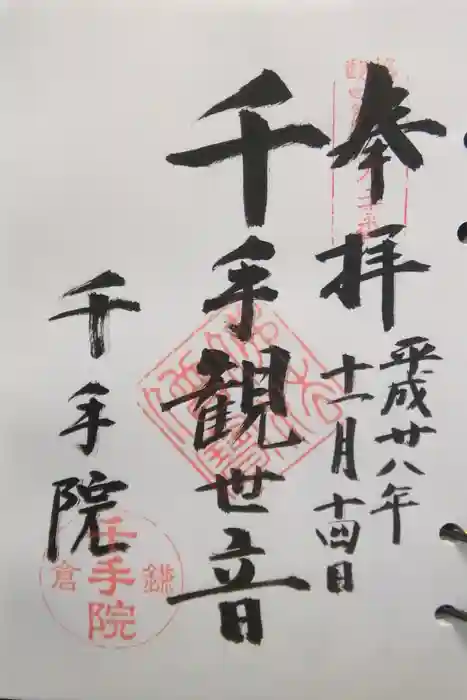 奉拝
平成廿八年
十一月十四日
千手観世音
千手院
鎌倉
千手院